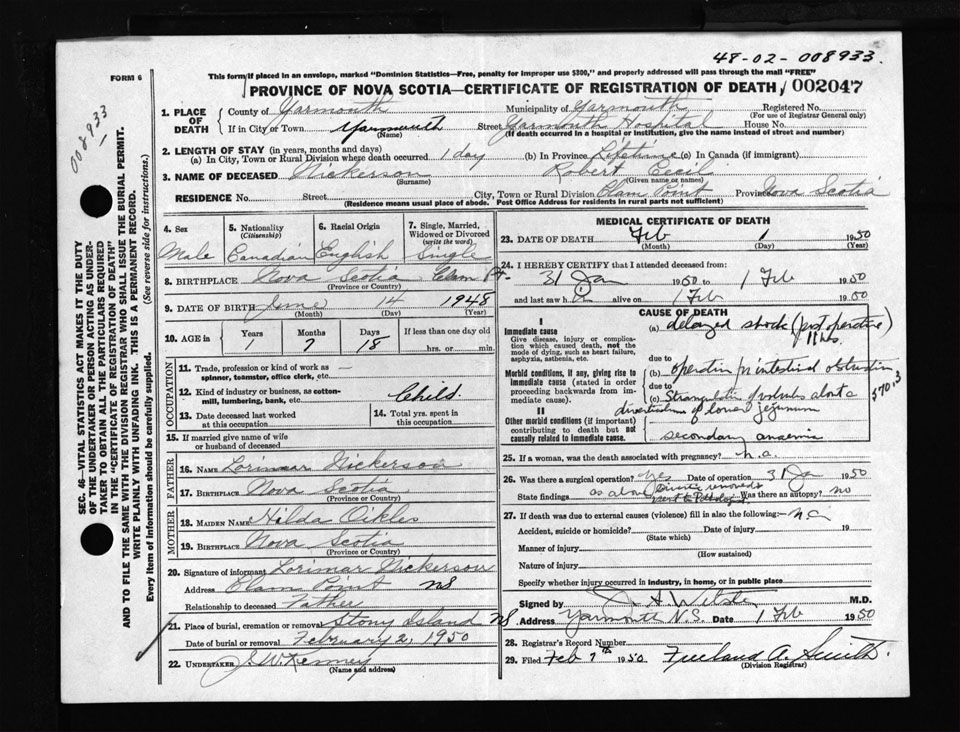 48-02-008933.
FORM 6
This form if placed in an envelope, marked "Dominion Statistics—Free, penalty for improper use $300," and properly addressed will pass through the mail "FREE"
PROVINCE OF NOVA SCOTIA—CERTIFICATE OF REGISTRATION OF DEATH 002047
008933
SEC. 46—VITAL STATISTICS ACT MAKES IT THE DUTY
OF THE UNDERTAKER OR PERSON ACTING AS UNDER-
TAKER TO OBTAIN ALL THE PARTICULARS REQUIRED
IN THE "CERTIFICATE OF REGISTRATION OF DEATH"
AND TO FILE THE SAME WITH THE DIVISION REGISTRAR WHO SHALL ISSUE THE BURIAL PERMIT.
WRITE PLAINLY WITH UNFADING INK. THIS IS A PERMANENT RECORD.
Every item of information should be carefully supplied. (See reverse side for instructions.)
1. PLACE OF DEATH
County of Yarmouth Municipality of Yarmouth Registered No.
(For use of Registrar General only)
If in City or Town Yarmouth Street Yarmouth Hospital House No.
(Name) (If death occurred in a hospital or institution, give the name instead of street and number)
2. LENGTH OF STAY (in years, months and days)
(a) In City, Town or Rural Division where death occurred 1 day (b) In Province Lifetime (c) In Canada (if immigrant)
3. NAME OF DECEASED Nickerson Robert Cecil
(Surname) (Given name or names)
RESIDENCE No. Street City, Town or Rural Division Clam Point Province Nova Scotia
(Residence means usual place of abode. Post Office Address for residents in rural parts not sufficient)
4. Sex 5. Nationality (Citizenship) 6. Racial Origin 7. Single, Married, Widowed or Divorced (write the word)
Male Canadian English Single
8. BIRTHPLACE Nova Scotia Clam Pt.
(Province or Country)
9. DATE OF BIRTH June 14 1948
(Month) (Day) (Year)
10. AGE in Years Months Days If less than one day
1 7 18 hrs. or min.
OCCUPATION
11. Trade, profession or kind of work as—
spinner, teamster, office clerk, etc.
12. Kind of industry or business, as cotton-
mill, lumbering, bank, etc. Child.
13. Date deceased last worked
at this occupation
14. Total yrs. spent in
this occupation
15. If married give name of wife
or husband of deceased
FATHER
16. NAME Lorimar Nickerson
17. BIRTHPLACE Nova Scotia
(Province or Country)
MOTHER
18. MAIDEN NAME Hilda Oikles
19. BIRTHPLACE Nova Scotia
(Province or Country)
20. Signature of informant Lorimar Nickerson
Address Clam Point NS
Relationship to deceased Father
21. Place of burial, cremation or removal Stony Island NS
Date of burial or removal February 2, 1950
22. UNDERTAKER J. W. Kenney
(Name and address)
MEDICAL CERTIFICATE OF DEATH
23. DATE OF DEATH Feb 1 1950
(Month) (Day) (Year)
24. I HEREBY CERTIFY that I attended deceased from:
31 Jan 1950 to 1 Feb 1950
and last saw h alive on 1 Feb 1950
CAUSE OF DEATH
I
Immediate cause
Give disease, injury or complica-
tion which caused death, not the
mode of dying, such as heart failure,
asphyxia, asthenia, etc.
(a) delayed shock (post operative)
11 hrs.
due to
Morbid conditions, if any, giving rise to
immediate cause (stated in order
proceeding backwards from im-
mediate cause).
(b) operation for intestinal obstruction
due to
(c) Strangulation of volvulus about a
diverticulum of lower jejunum
5703
II
Other morbid conditions (if important)
contributing to death but not
causally related to immediate cause.
secondary anaemia
25. If a woman, was the death associated with pregnancy? n.a.
26. Was there a surgical operation? yes Date of operation 31 Jan 1950
State findings as above removed sent to Pathologist Was there an autopsy? no
27. If death was due to external causes (violence) fill in also the following:—
Accident, suicide or homicide? Date of injury 19
(State which)
Manner of injury
(How sustained)
Nature of injury
Specify whether injury occurred in industry, in home, or in public place
Signed by M.D.
Address Yarmouth N.S. Date 1 Feb 1950
28. Registrar's Record Number
29. Filed Feb 7th 1950 Freeland A. Smith.
(Division Registrar)